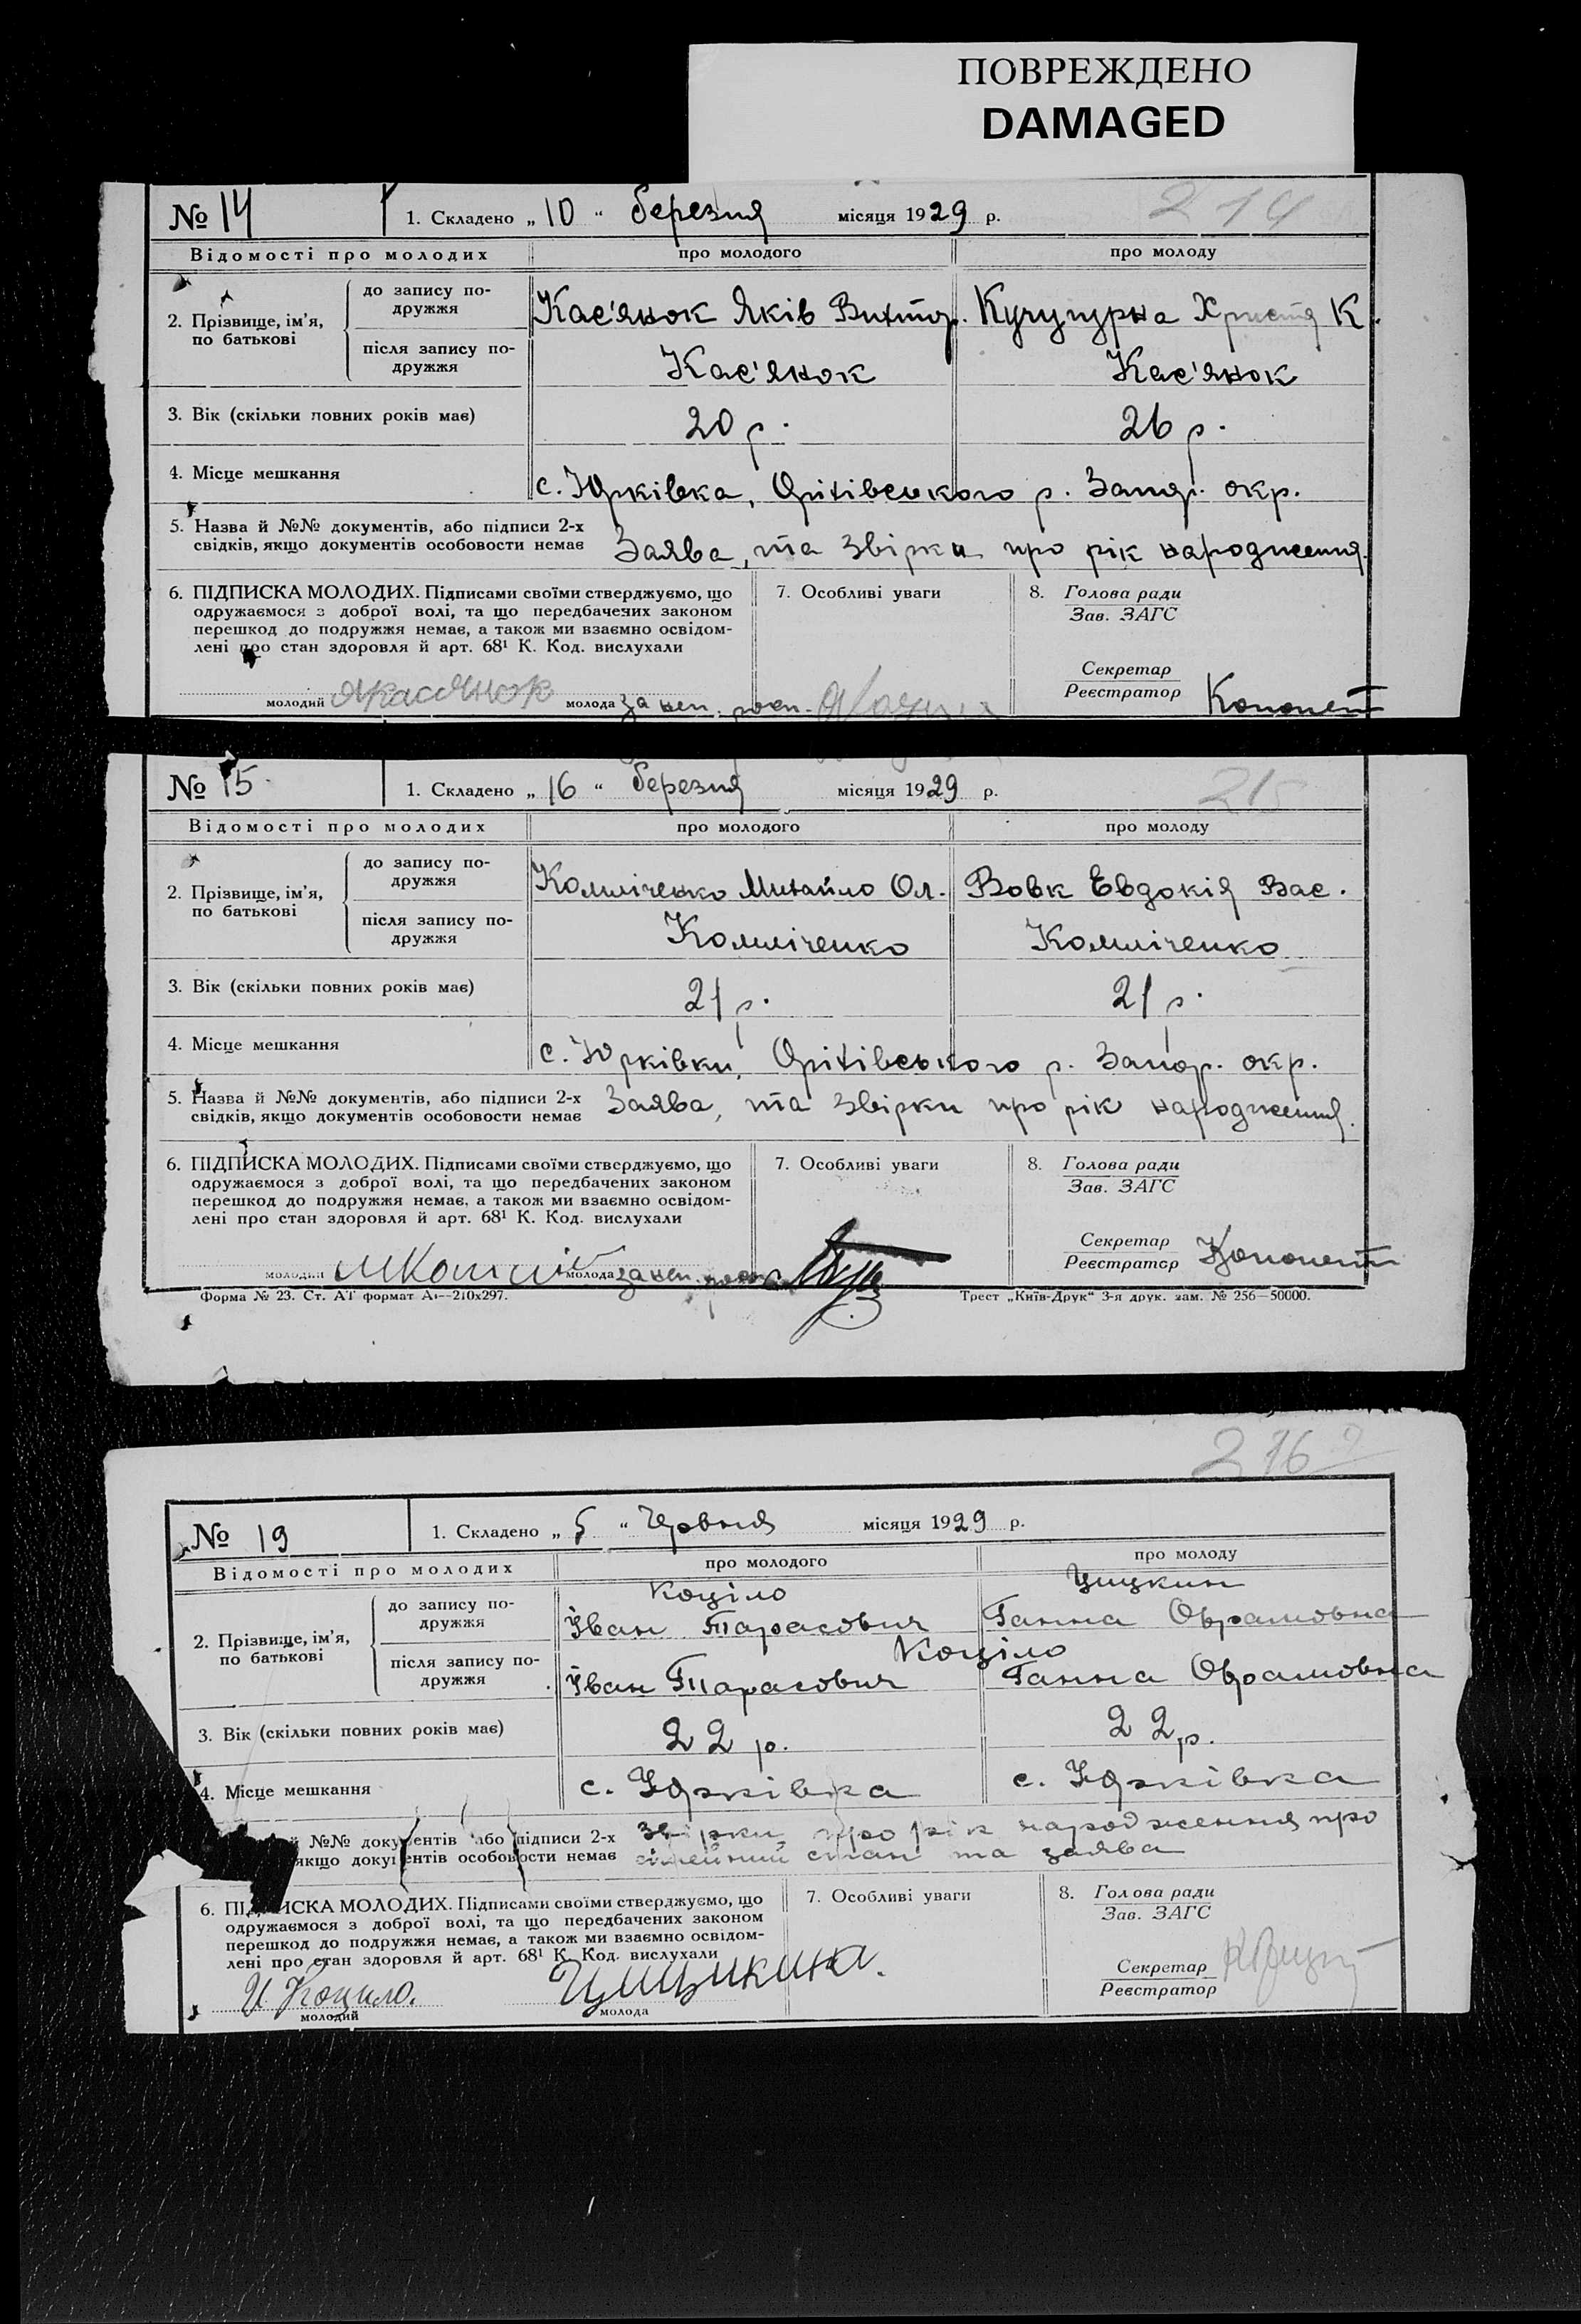 ПОВРЕЖДЕНО
DAMAGED
№ 14 1. Складено „ 10 “ березня місяця 1929 р. 214
Відомості про молодих про молодого про молоду
2. Прізвище, ім’я, по батькові
до запису по-дружжя Кас'янок Яків Вихтор. Кучугурна Христя К.
після запису по-дружжя Кас'янок Кас'янок
3. Вік (скільки повних років має) 20 р. 26 р.
4. Місце мешкання с. Юрківка, Оріхівського р. Запор. окр.
5. Назва й №№ документів, або підписи 2-х
свідків, якщо документів особовости немає Заява, та звірки про рік народження.
6. ПІДПИСКА МОЛОДИХ. Підписами своїми стверджуємо, що 7. Особливі уваги 8. Голова ради
одружаємося з доброї волі, та що передбачених законом Зав. ЗАГС
перешкод до подружжя немає, а також ми взаємно освідом-
лені про стан здоровля й арт. 68¹ К. Код. вислухали
Секретар
Реєстратор
молодий ЯКасянок молода за неп. росп.
№ 15 1. Складено „ 16 “ березня місяця 1929 р. 215
Відомості про молодих про молодого про молоду
2. Прізвище, ім’я, по батькові
до запису по-дружжя Михайло Ол. Вовк Евдокія Вас.
після запису по-дружжя
3. Вік (скільки повних років має) 21 р. 21 р.
4. Місце мешкання с. Юрківки, Оріхівського р. Запор. окр.
5. Назва й №№ документів, або підписи 2-х
свідків, якщо документів особовости немає Заява, та звірки про рік народження.
6. ПІДПИСКА МОЛОДИХ. Підписами своїми стверджуємо, що 7. Особливі уваги 8. Голова ради
одружаємося з доброї волі, та що передбачених законом Зав. ЗАГС
перешкод до подружжя немає, а також ми взаємно освідом-
лені про стан здоровля й арт. 68¹ К. Код. вислухали
Секретар
Реєстратор
молодий молода за неп.
Форма № 23. Ст. АТ формат А₄—210х297. Трест „Київ-Друк“ 3-я друк. зам. № 256—50000.
216
№ 19 1. Складено „ 5 “ Червня місяця 1929 р.
Відомості про молодих про молодого про молоду
2. Прізвище, ім’я, по батькові
Коціло
до запису по-дружжя Іван Тарасович Ганна Оврамовна
Коціло
після запису по-дружжя Іван Тарасович Ганна Оврамовна
3. Вік (скільки повних років має) 22 р. 22 р.
4. Місце мешкання с. Юрківка с. Юрківка
й №№ документів або підписи 2-х звірки про рік народження про
якщо документів особовости немає сімейний стан та заява
6. ПІДПИСКА МОЛОДИХ. Підписами своїми стверджуємо, що 7. Особливі уваги 8. Голова ради
одружаємося з доброї волі, та що передбачених законом Зав. ЗАГС
перешкод до подружжя немає, а також ми взаємно освідом-
лені про стан здоровля й арт. 68¹ К. Код. вислухали
Секретар
Реєстратор
И. Коцило.
молодий молода